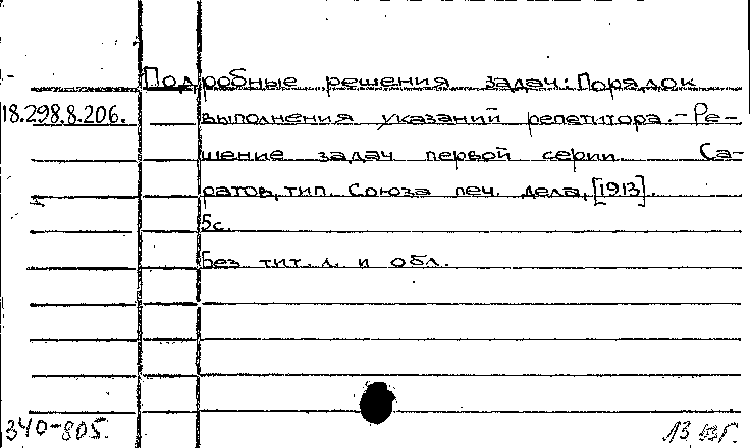 Подробные решения задач: Порядок
18.298.8.206. выполнения указаний репетитора. – Ре-
шение задач первой серии. Са-
ратов, тип. Союза печ. дела, [1913].
5 с.
Без тит. л. и обл.
340-805.